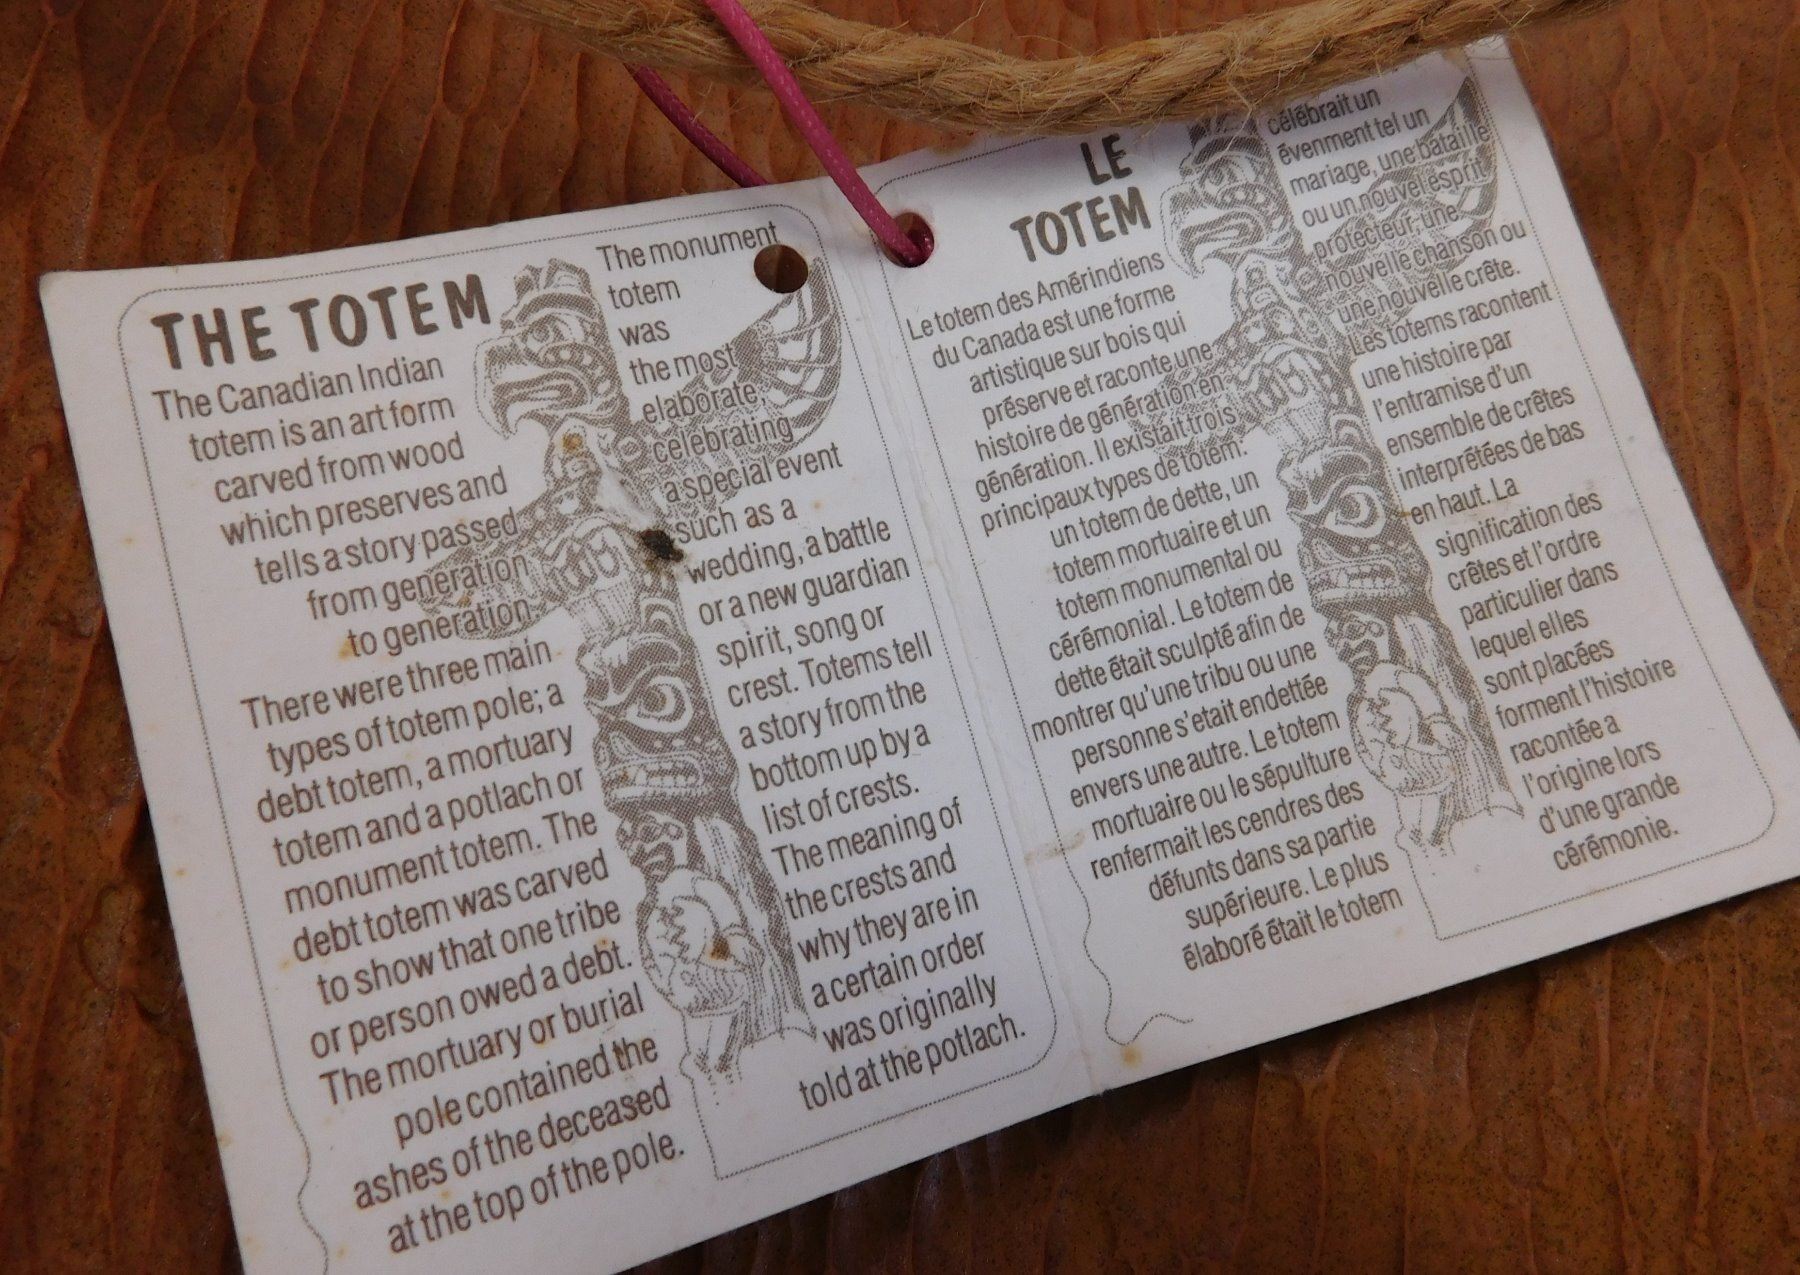 THE TOTEM
The Canadian Indian
totem is an art form
carved from wood
which preserves and
tells a story passed
from generation
to generation
There were three main
types of totem pole; a
debt totem, a mortuary
totem and a potlach or
monument totem. The
debt totem was carved
to show that one tribe
or person owed a debt.
The mortuary or burial
pole contained the
ashes of the deceased
at the top of the pole.
The monument
totem
was
the most
elaborate,
celebrating
a special event
such as a
wedding, a battle
or a new guardian
spirit, song or
crest. Totems tell
a story from the
bottom up by a
list of crests.
The meaning of
the crests and
why they are in
a certain order
was originally
told at the potlach.
LE
TOTEM
Le totem des Amérindiens
du Canada est une forme
artistique sur bois qui
préserve et raconte une
histoire de génération en
génération. Il existait trois
principaux types de totem:
un totem de dette, un
totem mortuaire et un
totem monumental ou
cérémonial. Le totem de
dette était sculpté afin de
montrer qu'une tribu ou une
personne s'était endettée
envers une autre. Le totem
mortuaire ou le sépulture
renfermait les cendres des
défunts dans sa partie
supérieure. Le plus
élaboré était le totem
célébrait un
évenment tel un
mariage, une bataille
ou un nouvel esprit
protecteur, une
nouvelle chanson ou
une nouvelle crête.
Les totems racontent
une histoire par
l'entramise d'un
ensemble de crêtes
interprétées de bas
en haut. La
signification des
crêtes et l'ordre
particulier dans
lequel elles
sont placées
forment l'histoire
racontée a
l'origine lors
d'une grande
cérémonie.